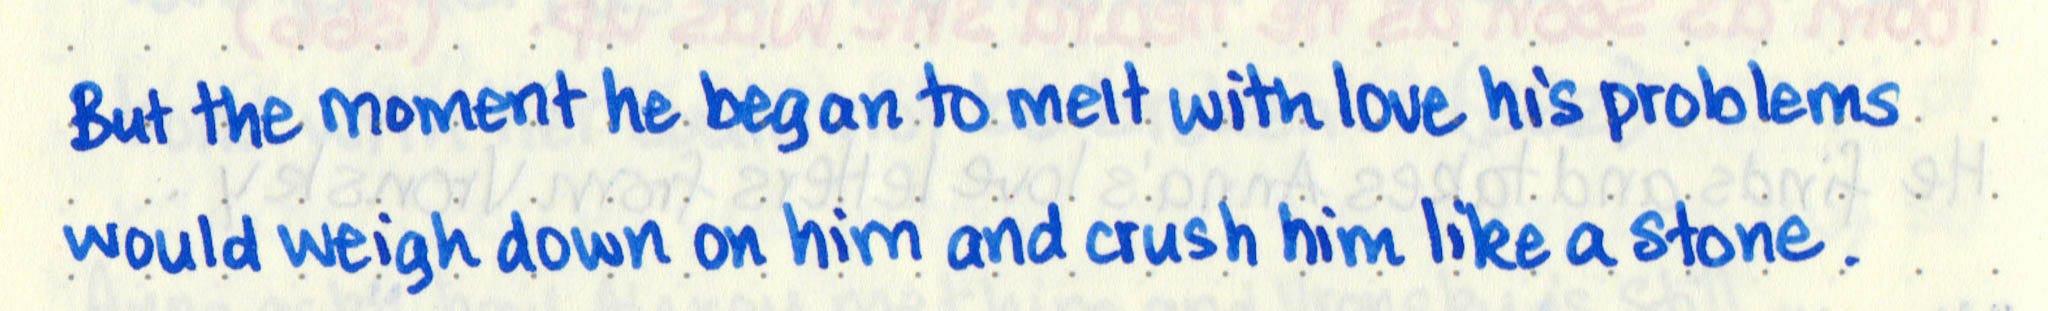 But the moment he began to melt with love his problems
would weigh down on him and crush him like a stone.